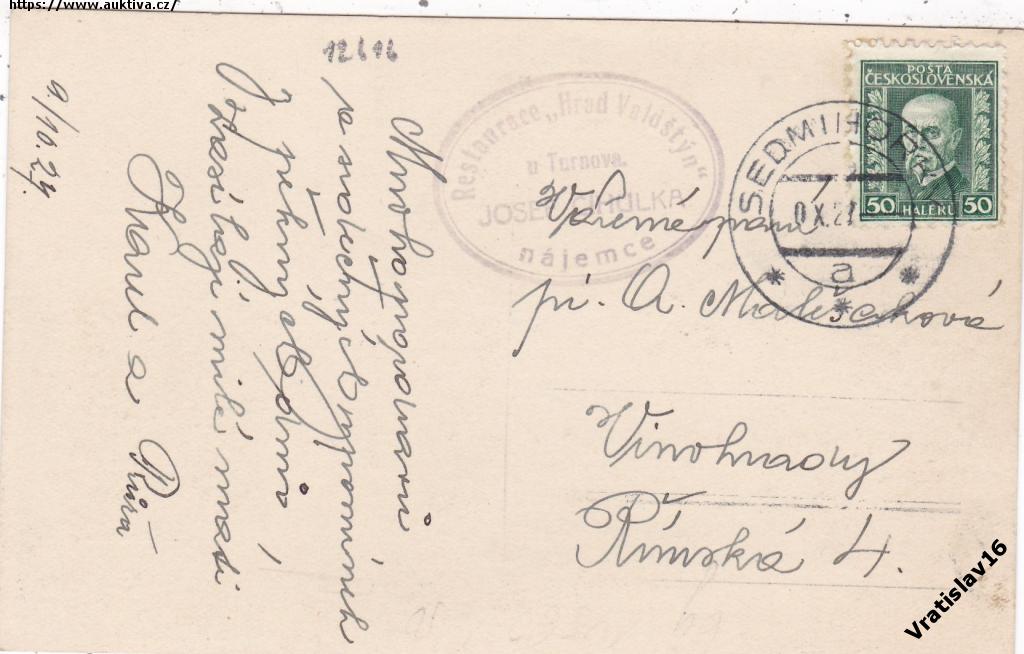 https://www.auktiva.cz/
12616
9./10.27.
Mnoho pozdravů
a srdečných vzpomínek
z pěkný
zasílají milé
Karel a Růža
Restaurace „Hrad Valdštýn“
u Turnova.
JOSEF CIHULKA
nájemce
POŠTA
ČESKOSLOVENSKÁ
50 HALÉŘŮ 50
SEDMIHORKY
X.27
a
Vážená paní
pí. A. Maleschová
Vinohrady
Římská 4.
Vratislav16